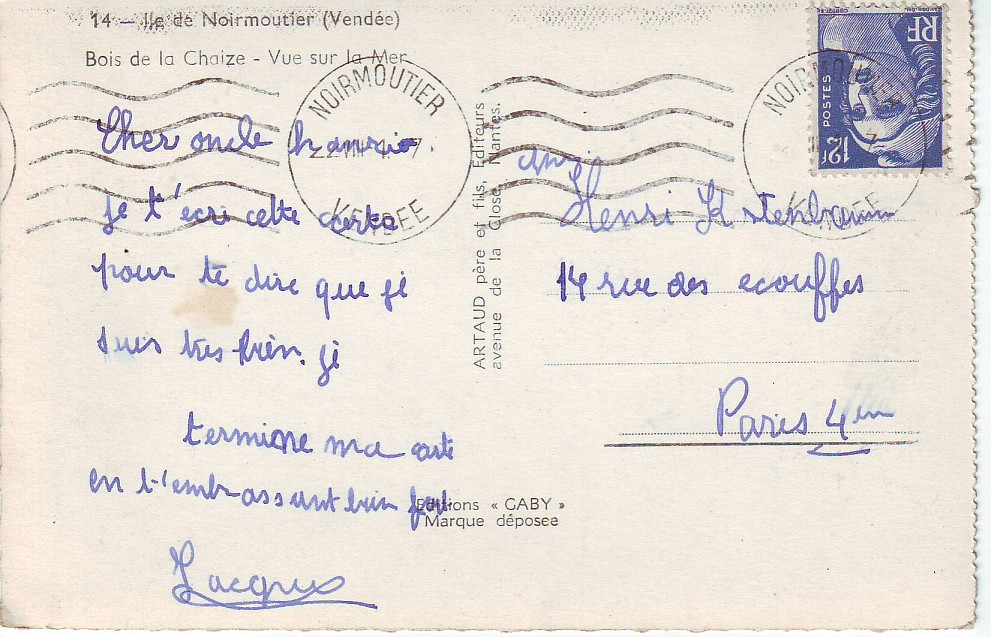 14 - Ile de Noirmoutier (Vendée)
Bois de la Chaize - Vue sur la Mer
NOIRMOUTIER
VENDEE
Cher oncle
je t'ecri cette carte
pour te dire que je
suis tres bien. je
termine ma carte
en t'embrassant bien fort
Jacques
ARTAUD père et fils, Éditeurs
avenue de la Close, Nantes.
Editions « GABY »
Marque déposée
NOIRMOUTIER
VENDEE
RF
POSTES
12f
Henri
14 rue des ecouffes
Paris 4em